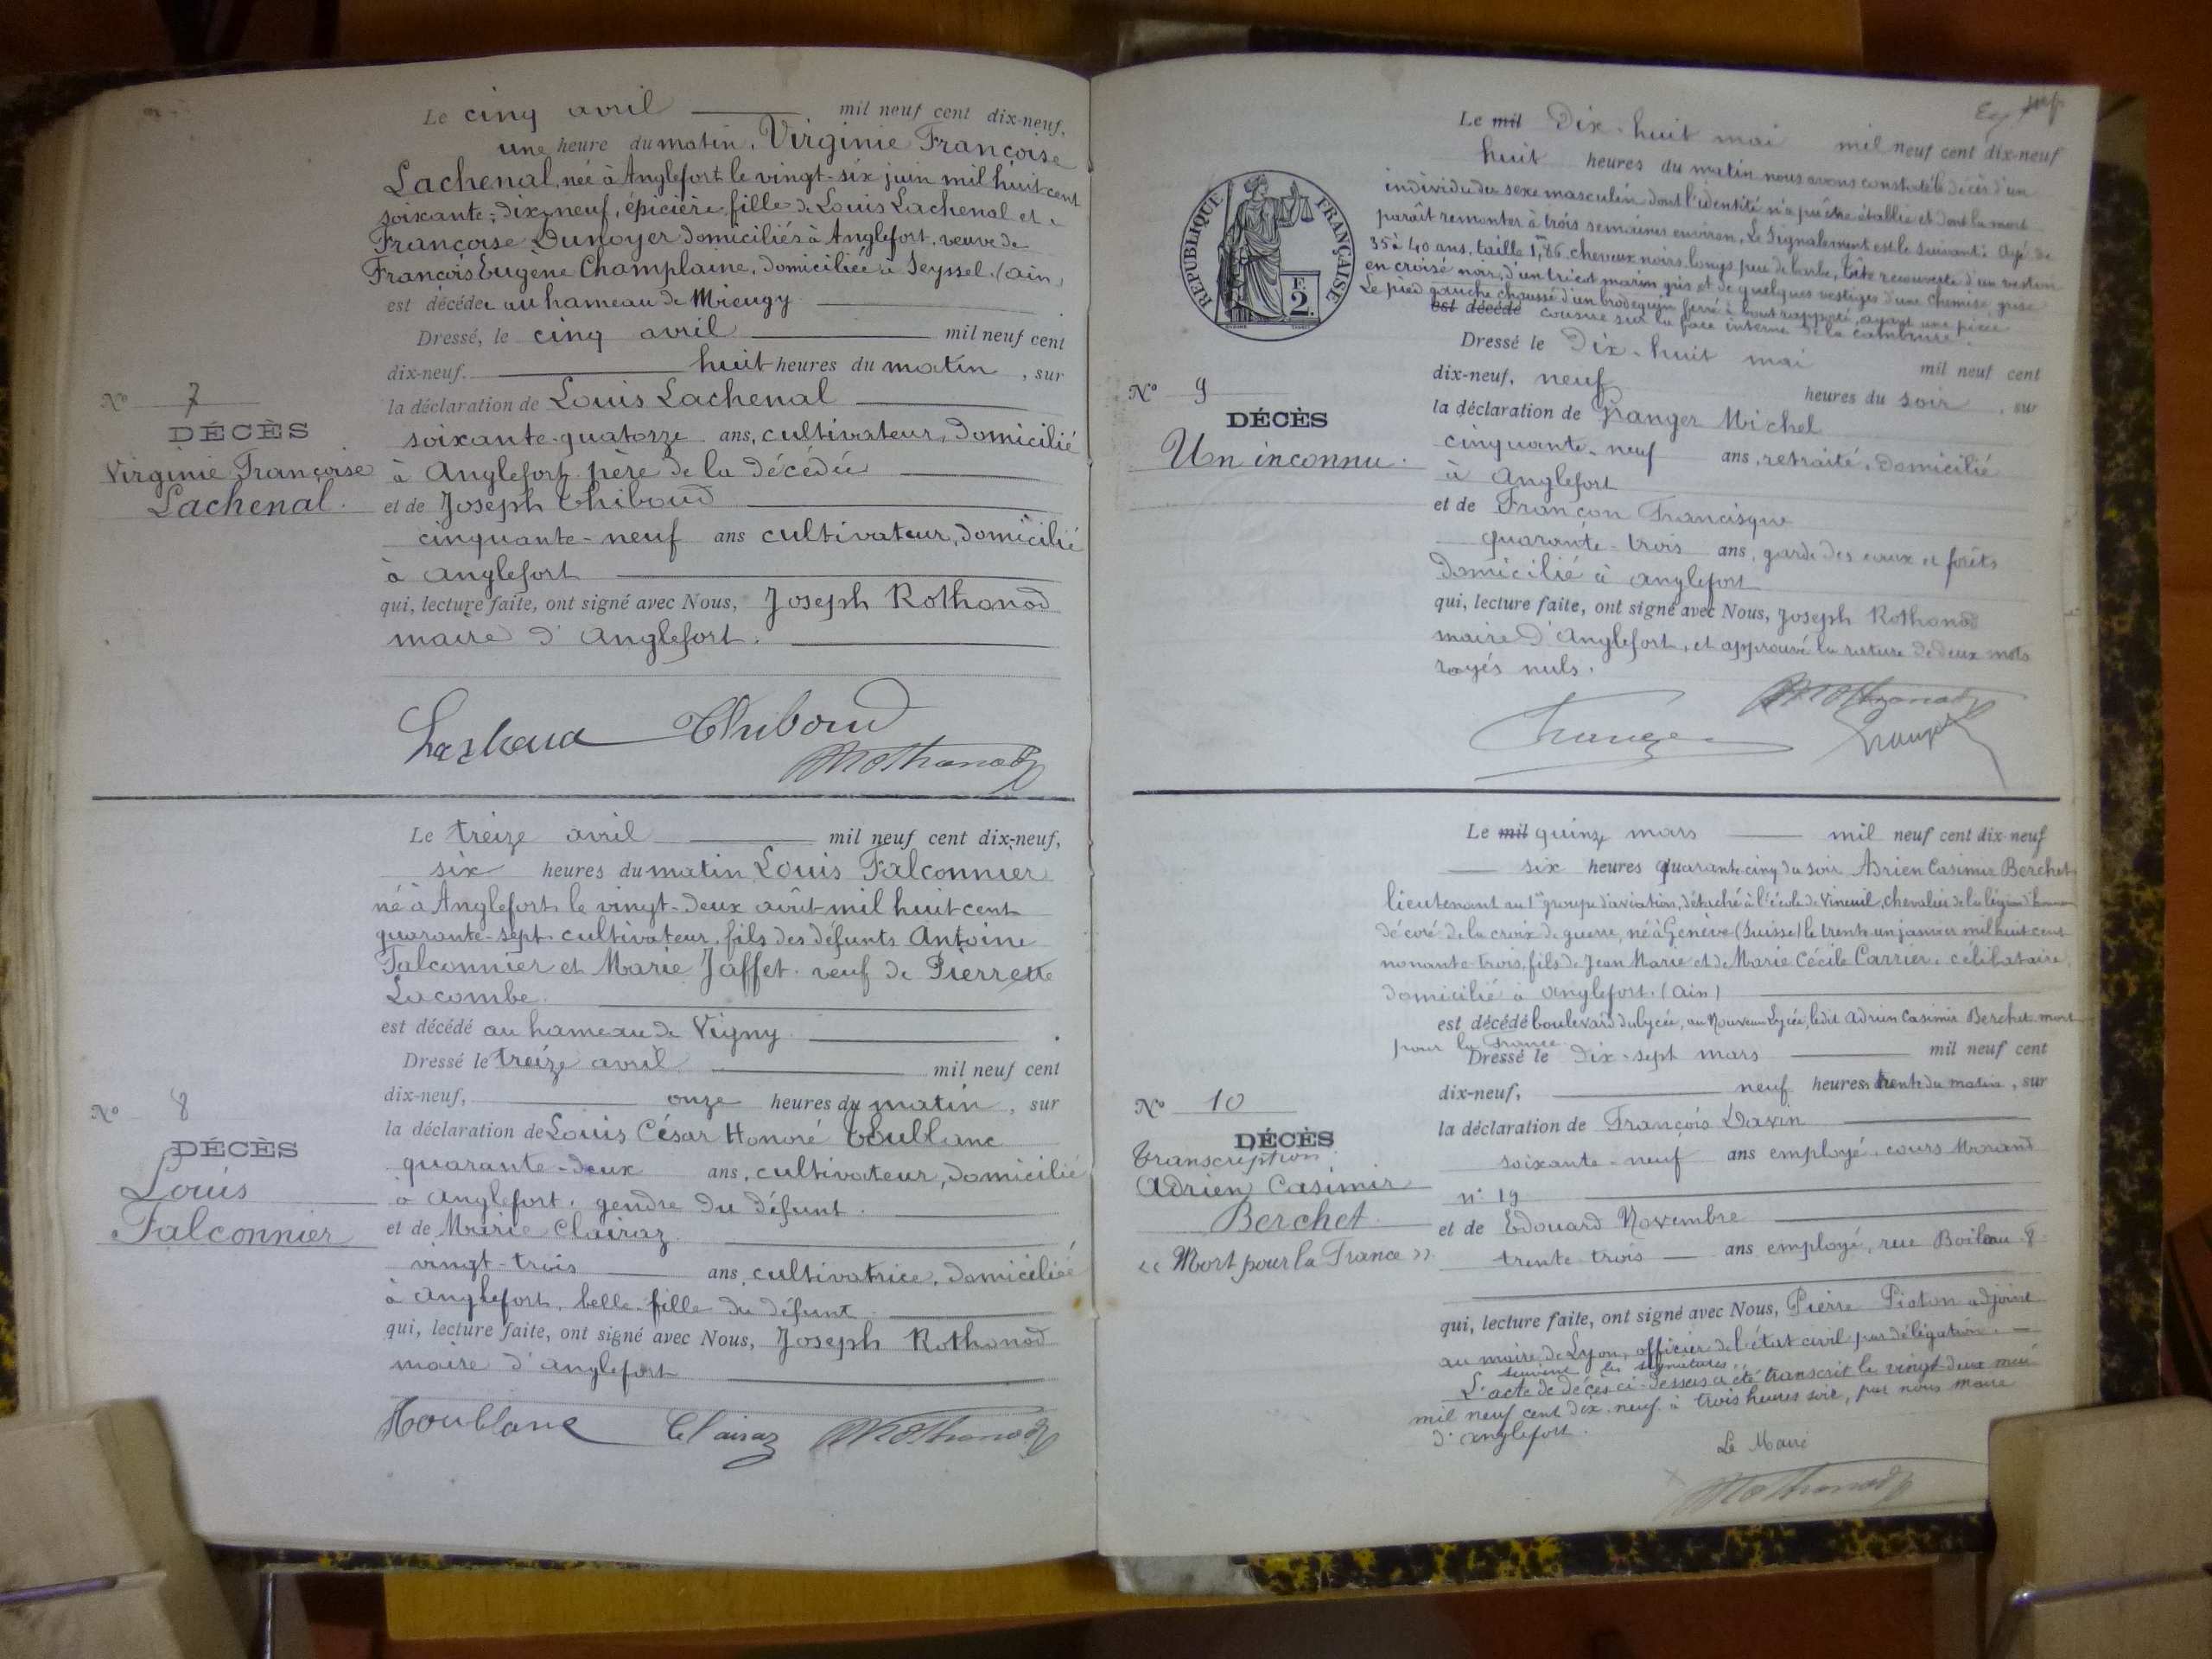 Le cinq avril mil neuf cent dix-neuf,
une heure du matin, Virginie Françoise
Lachenal, née à Anglefort le vingt-six juin mil huit cent
soixante-dix-neuf, épicière, fille de Louis Lachenal et de
Françoise Dunoyer domiciliés à Anglefort, veuve de
François Eugène Champlaine, domiciliée à Seyssel (Ain)
est décédée au hameau de Mieugy
Dressé, le cinq avril mil neuf cent
dix-neuf. huit heures du matin, sur
la déclaration de Louis Lachenal
soixante-quatorze ans, cultivateur, domicilié
à Anglefort, père de la décédée
et de Joseph Thiboud
cinquante-neuf ans cultivateur, domicilié
à Anglefort
qui, lecture faite, ont signé avec Nous, Joseph Rothonod
maire d'Anglefort.
N° 7
DÉCÈS
Virginie Françoise
Lachenal.
Thiboud
Rothonod
Le treize avril mil neuf cent dix-neuf,
six heures du matin Louis Falconnier
né à Anglefort, le vingt-deux août mil huit cent
quarante-sept, cultivateur, fils des défunts Antoine
Falconnier et Marie Jaffet. veuf de Pierrette
Lacombe.
est décédé au hameau de Vigny
Dressé le treize avril mil neuf cent
dix-neuf, onze heures du matin, sur
la déclaration de Louis César Honoré Thoublanc
quarante-deux ans, cultivateur, domicilié
à Anglefort, gendre du défunt.
et de Marie Clairaz
vingt-trois ans, cultivatrice, domiciliée
à Anglefort, belle-fille du défunt
qui, lecture faite, ont signé avec Nous, Joseph Rothonod
maire d'Anglefort
N° 8
DÉCÈS
Louis
Falconnier
Houblanc Clairaz Rothonod
Le mil Dix-huit mai mil neuf cent dix-neuf
huit heures du matin nous avons constaté le décès d'un
individu du sexe masculin dont l'identité n'a pu être établie et dont la mort
paraît remonter à trois semaines environ. Le signalement est le suivant: Agé de
35 à 40 ans, taille 1,m86, cheveux noirs longs, peu de barbe, tête recouverte d'un veston
en croisé noir, d'un tricot marin gris et de quelques vestiges d'une chemise grise
Le pied gauche chaussé d'un brodequin ferré à bout rapporté, ayant une pièce
est décédé cousue sur la face interne de la cambrure.
Dressé le Dix-huit mai mil neuf cent
dix-neuf, neuf heures du soir, sur
la déclaration de Granger Michel
cinquante-neuf ans, retraité, domicilié
à Anglefort
et de Françon Francisque
quarante-trois ans, garde des eaux et forêts
domicilié à Anglefort
qui, lecture faite, ont signé avec Nous, Joseph Rothonod
maire d'Anglefort, et approuvé la rature de deux mots
rayés nuls.
RÉPUBLIQUE FRANÇAISE
2 F.
N° 9
DÉCÈS
Un inconnu.
Rothonod
Le mil quinze mars mil neuf cent dix-neuf
six heures quarante-cinq du soir Adrien Casimir Berchet
lieutenant au 1er groupe d'aviation, détaché à l'école de Vineuil, chevalier de la légion d'honneur
décoré de la croix de guerre, né à Genève (Suisse) le trente-un janvier mil huit cent
nonante-trois, fils de Jean Marie et de Marie Cécile Carrier, célibataire,
domicilié à Anglefort (Ain)
est décédé boulevard du lycée, au Nouveau Lycée, ledit Adrien Casimir Berchet mort
pour la France
Dressé le dix-sept mars mil neuf cent
dix-neuf, neuf heures trente du matin, sur
la déclaration de François Davin
soixante-neuf ans employé, cours Morand
n° 19
et de Edouard Novembre
trente trois ans employé, rue Boileau 8
qui, lecture faite, ont signé avec Nous, Pierre Pioton adjoint
au maire de Lyon, officier de l'état civil par délégation.
suivent les signatures
L'acte de décès ci-dessus a été transcrit le vingt-deux mai
mil neuf cent dix-neuf à trois heures soir, par nous maire
d'Anglefort.
Le Maire
Rothonod
N° 10
DÉCÈS
Transcription
Adrien Casimir
Berchet
« Mort pour la France »